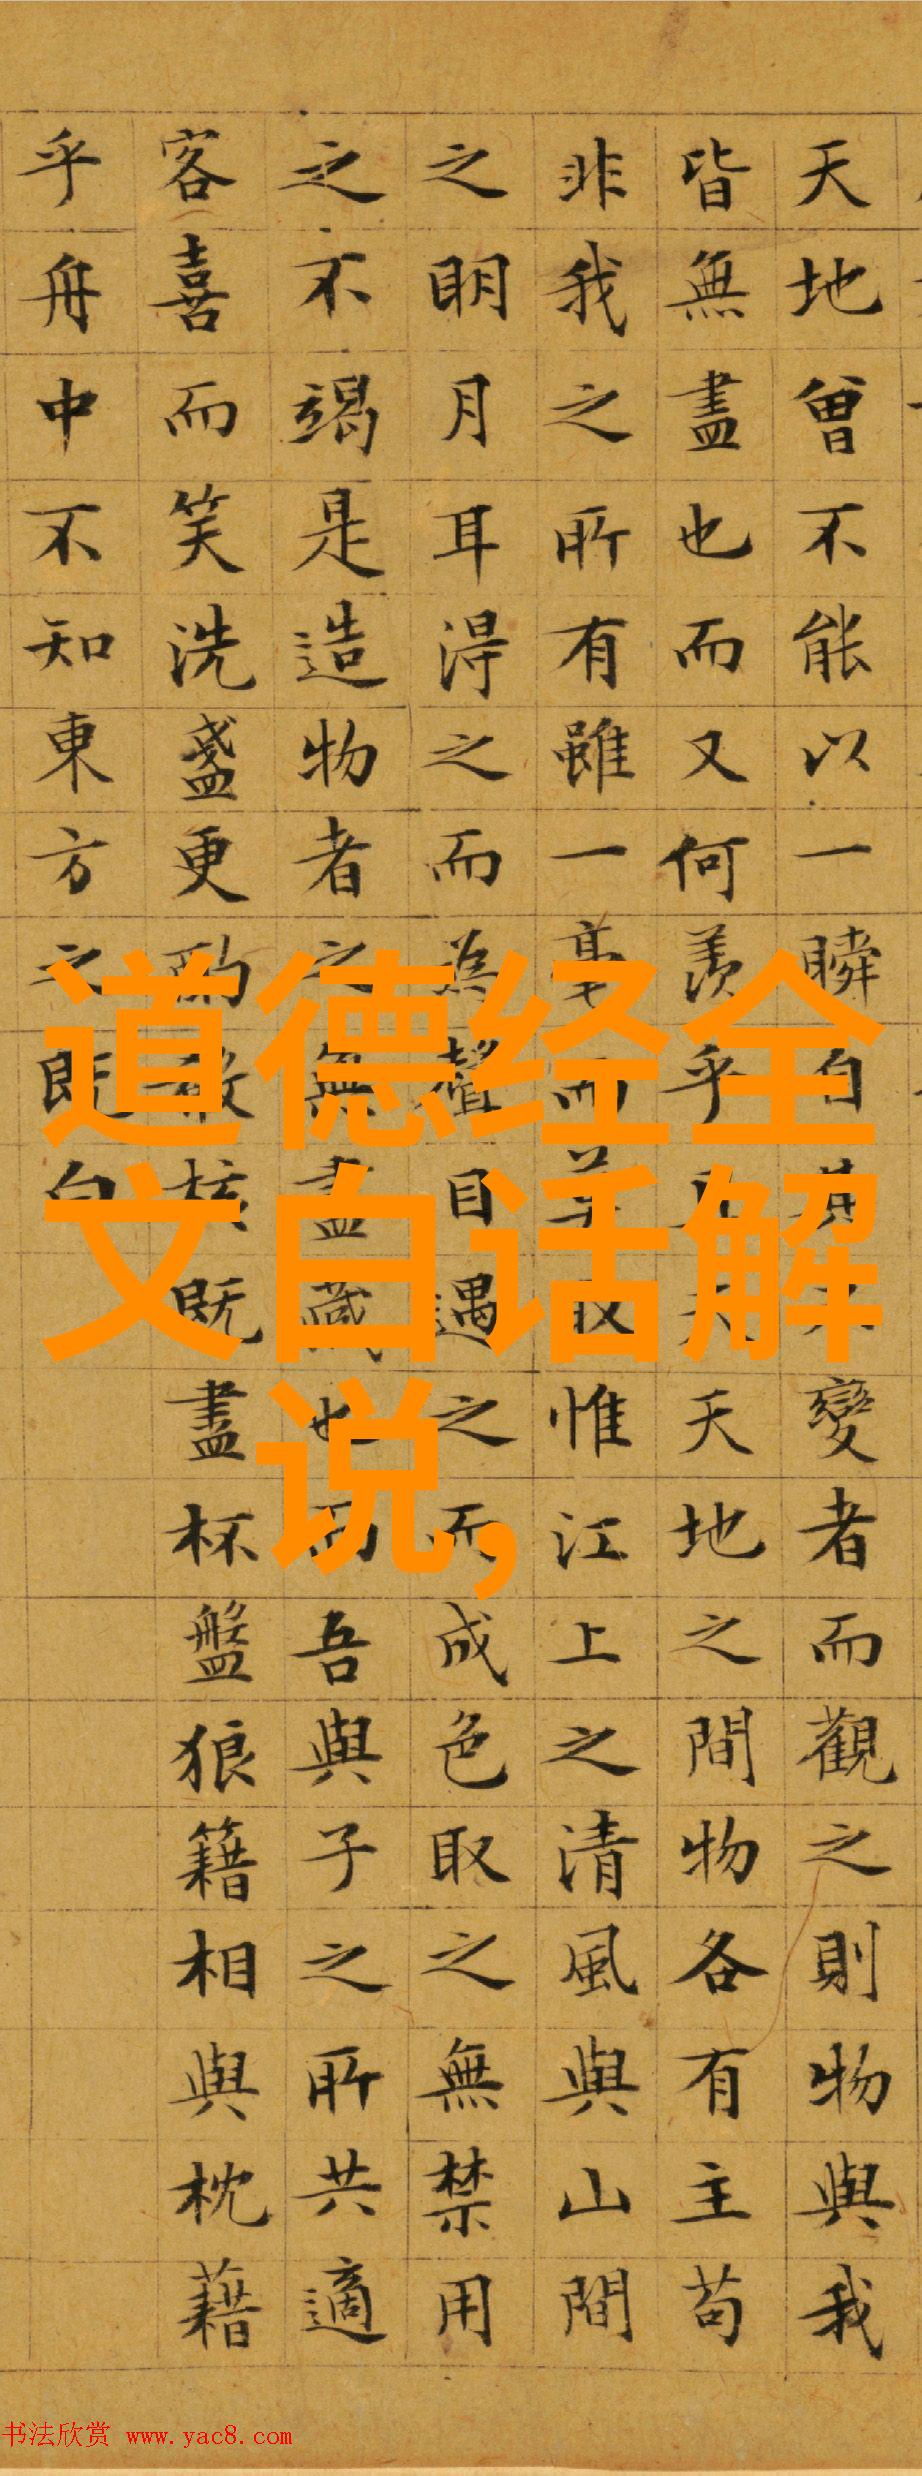 天地曾不能以一瞬自其不變者而觀之則物與我
皆無盡也而又何羨乎且夫天地之間物各有主苟
非我之所有雖一毫而莫取惟江上之清風與山間
之明月耳得之而為聲目遇之而成色取之無禁用
之不竭是造物者之無盡藏也而吾與子之所共適
客喜而笑洗盞更酌殽核既盡杯盤狼籍相與枕藉
乎舟中不知東方之既白
道德经全
文白话解
说,
书法欣赏 www.yac8.com